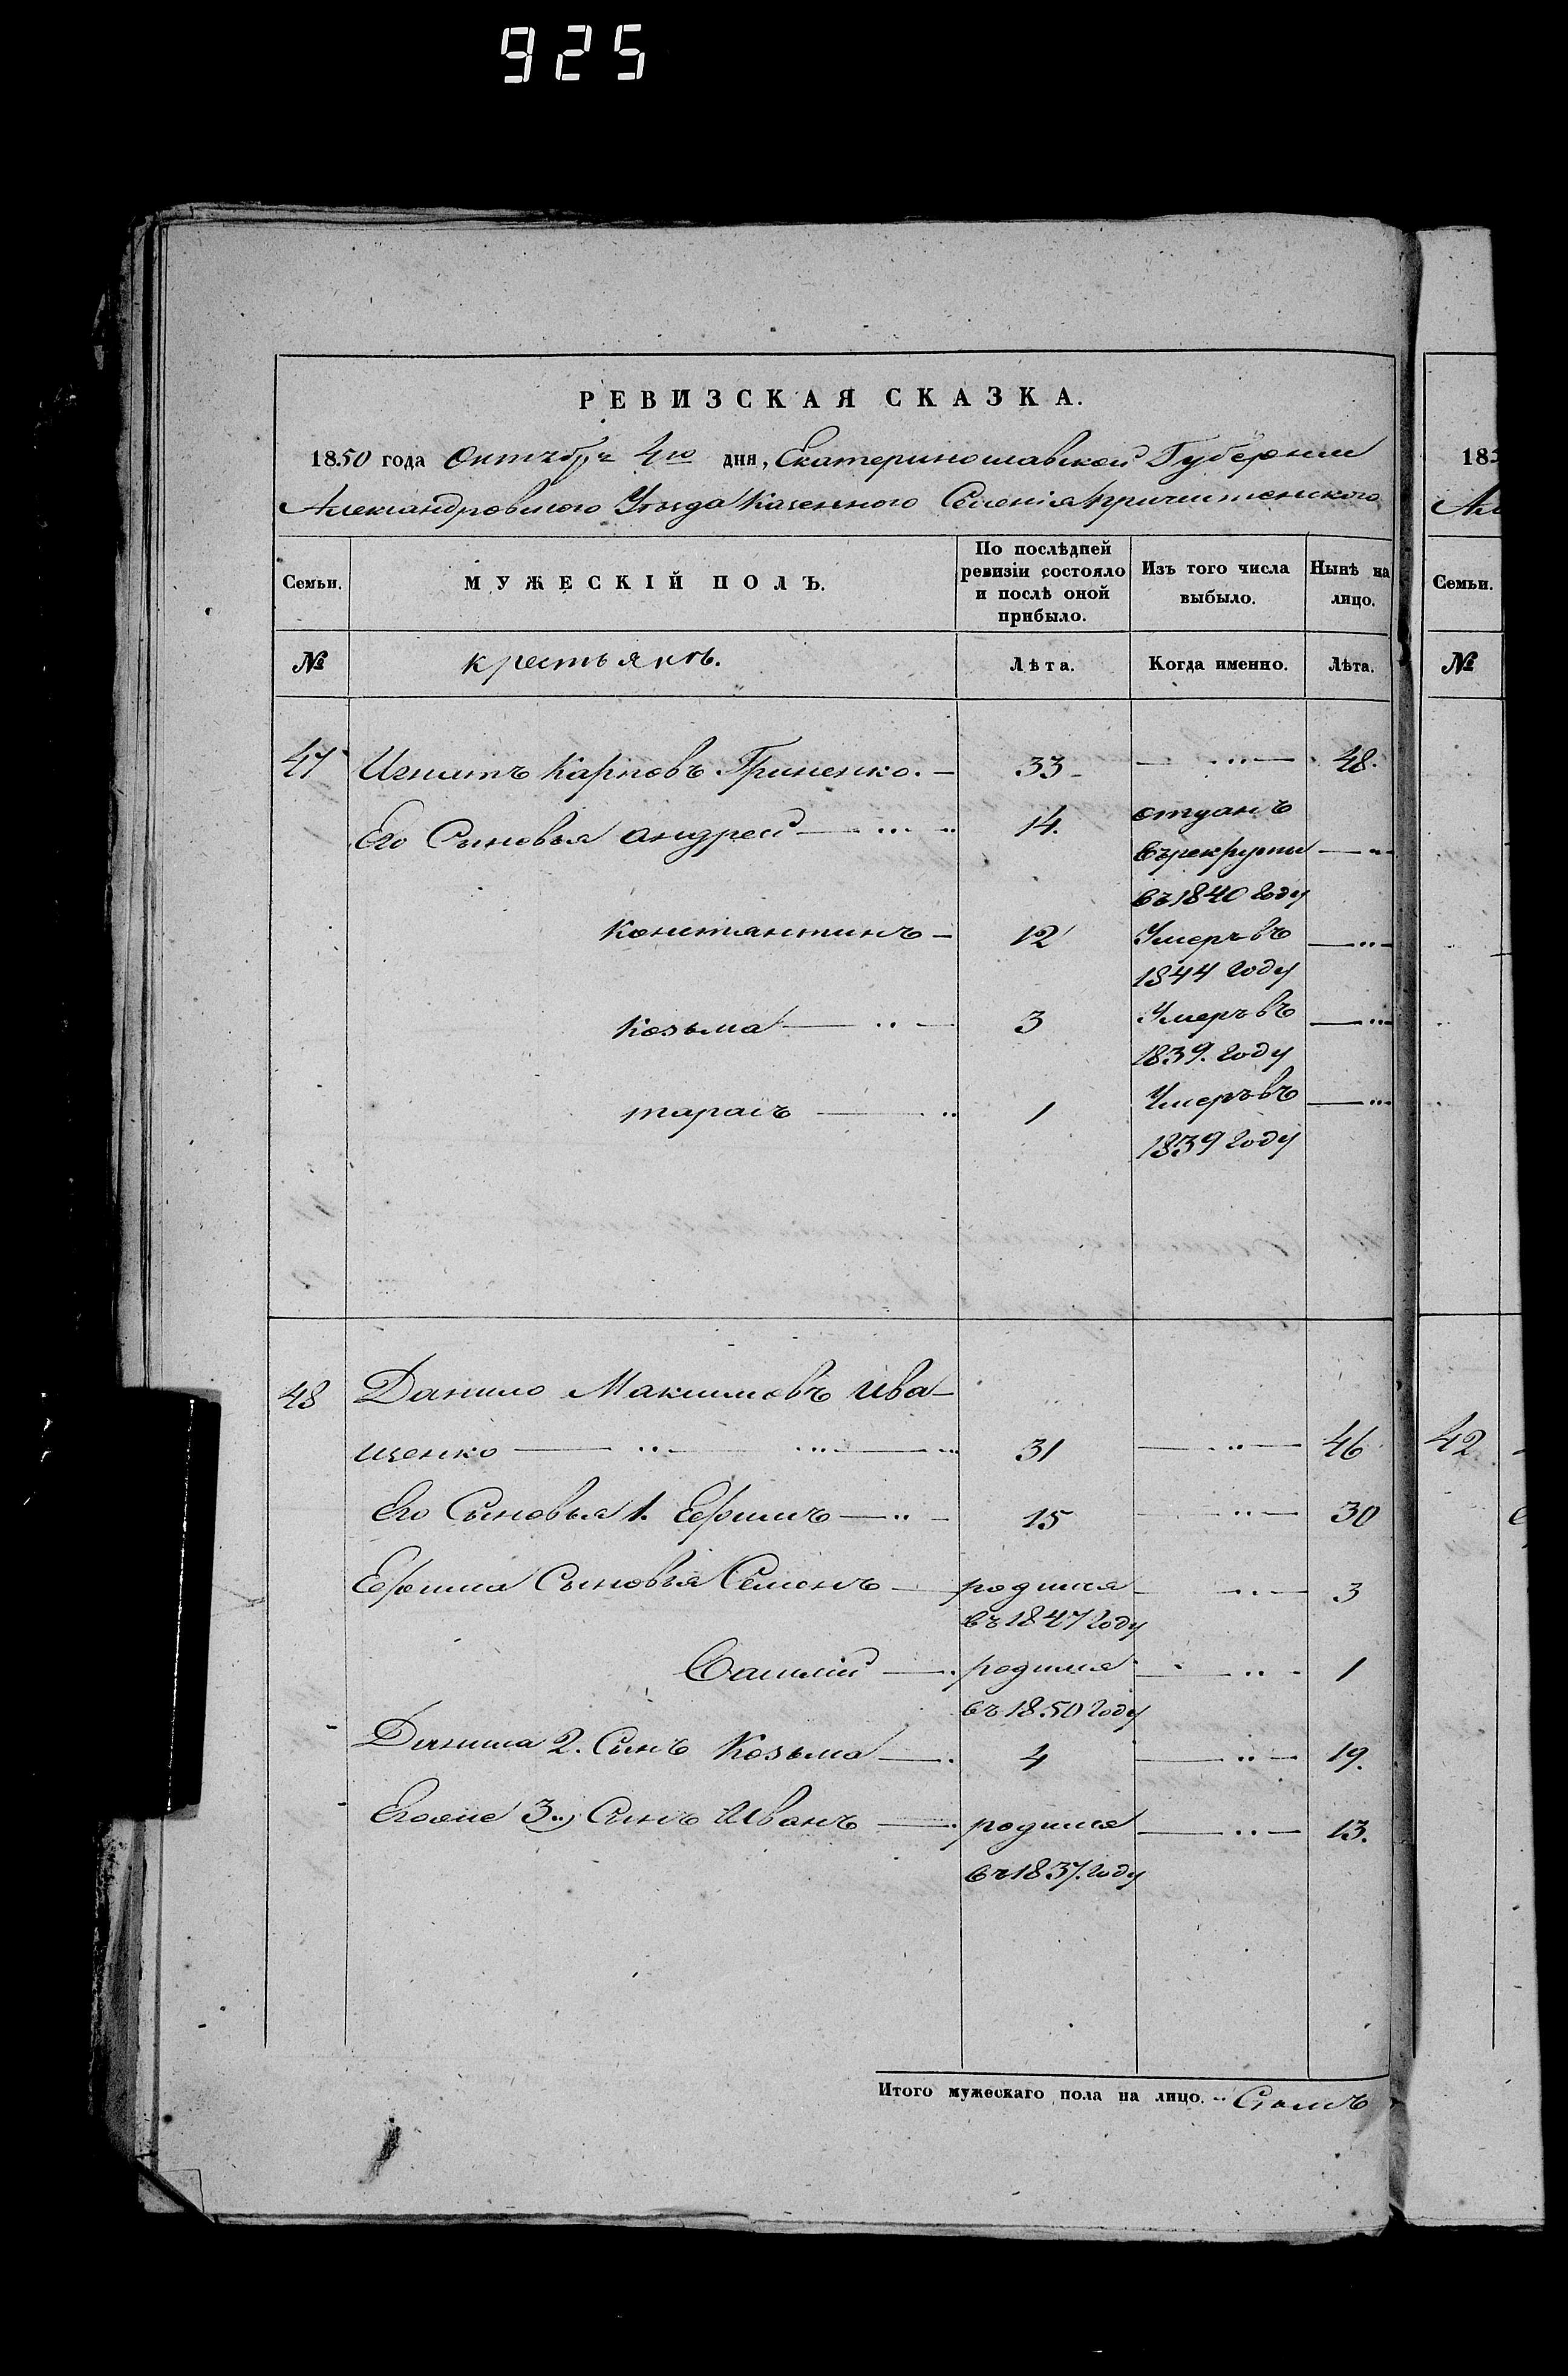 925
РЕВИЗСКАЯ СКАЗКА.
1850 года Октября 4го дня, Екатеринославской Губернии
Александровского Уезда Казенного Селения
Семьи. МУЖЕСКІЙ ПОЛЪ. По послѣдней ревизіи состояло и послѣ оной прибыло. Изъ того числа выбыло. Нынѣ на лицо.
№ крестьянъ. Лѣта. Когда именно. Лѣта.
47 Игнатъ Карповъ Гриненко. 33 48.
Его Сыновья Андрей 14. отданъ
въ рекруты
въ 1840 году
Константинъ 12 Умеръ въ
1844 году
Козьма 3 Умеръ въ
1839. году
Тарасъ 1 Умеръ въ
1839 году
48 Данило Максимовъ Ива-
щенко 31 46
Его Сыновья 1. Ефимъ 15 30
Ефима Сыновья Семенъ родился 3
въ 1847 году
Василий родился 1
въ 1850 году
Данила 2. Сынъ Козьма 4 19.
Егоже 3. Сынъ Иванъ родился 13.
въ 1837. году
Итого мужескаго пола на лицо.
185
Ал
Семьи.
№
42